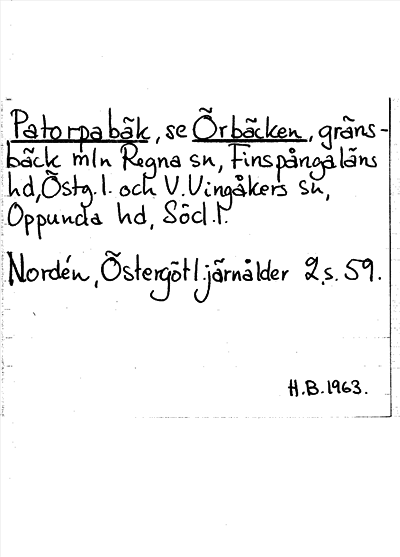 Patorpabäk, se Örbäcken, gräns-
bäck mln Regna sn, Finspångaläns
hd, Östg.l. och V.Vingåkers sn,
Oppunda hd, Södl.l.
Nordén, Östergötl.järnålder 2,s.59.
H.B.1963.